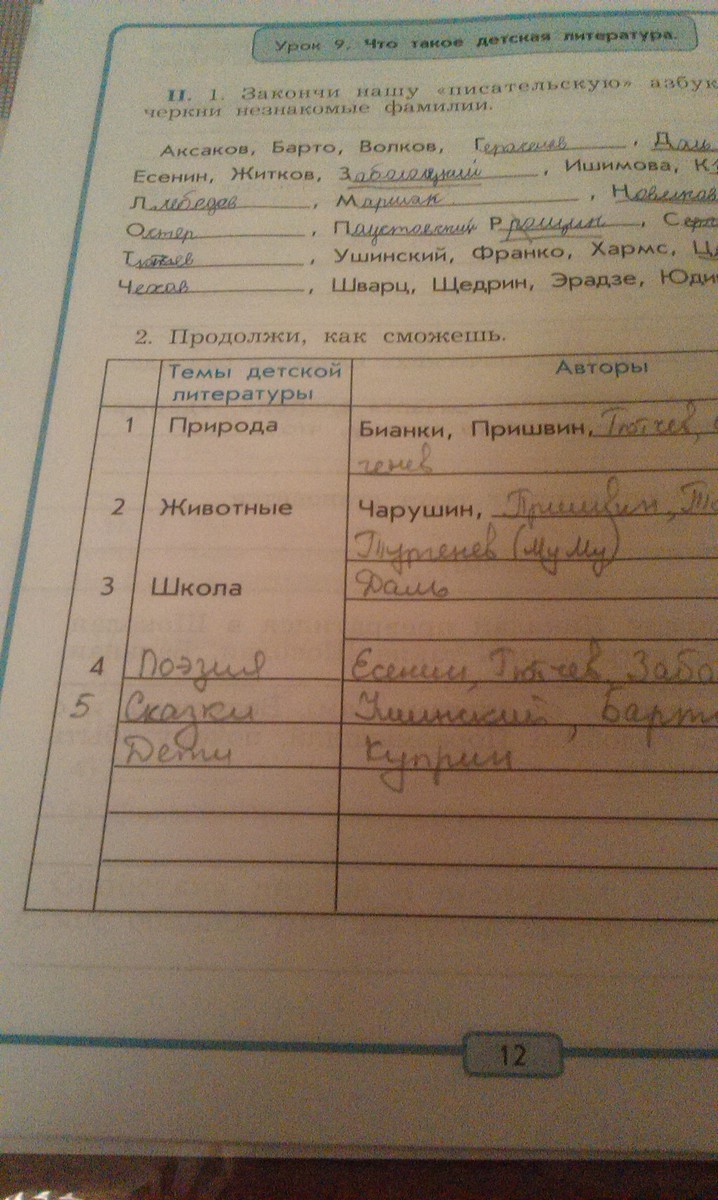 Урок 9. Что такое детская литература.
II. 1. Закончи нашу «писательскую» азбук
черкни незнакомые фамилии.
Аксаков, Барто, Волков, Герасенев, Даль
Есенин, Житков, Заболоцкий, Ишимова, К
Л лебедев, Маршак, Новиков
Остер, Паустовский Р рощин, С
Тютчев, Ушинский, Франко, Хармс, Ц
Чехов, Шварц, Щедрин, Эрадзе, Юди
2. Продолжи, как сможешь.
Темы детской литературы Авторы
1 Природа Бианки, Пришвин, Тютчев,
генев
2 Животные Чарушин, Пришвин, То
Тургенев (Му Му)
3 Школа Даль
4 Поэзия Есенин, Тютчев, Забо
5 Сказки Ушинский, Барт
Дети Куприн
12